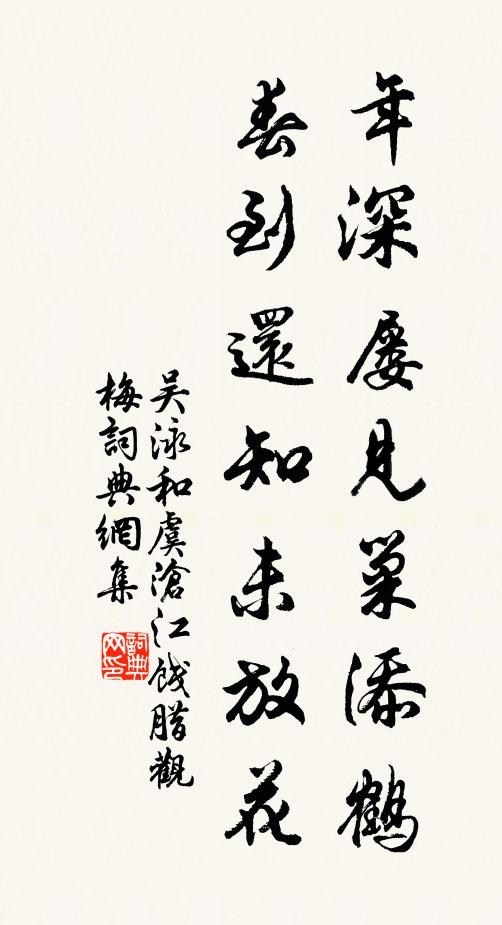 年深屡見巢添鶴
春到還知未放花
吴泳和虞滄江餞腊觀
梅詞典網集
詞典网印